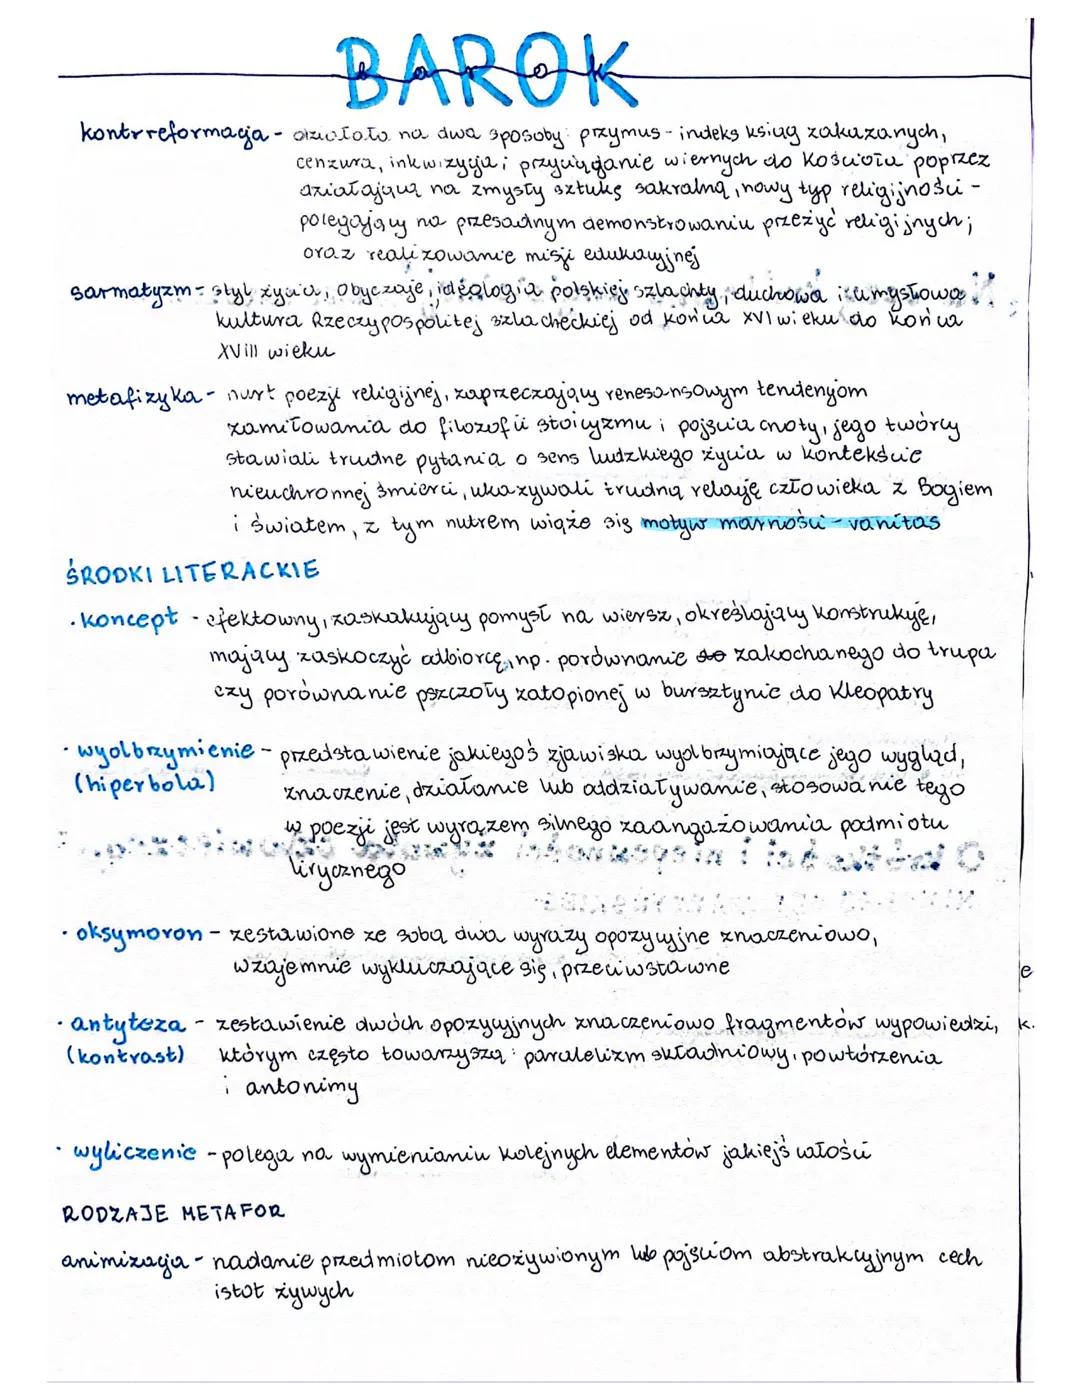 BAROK
barok
kontrreformacja - działało na dwa sposoby: przymus - indeks ksiąg zakazanych,
cenzura, inkwizycja; przyciąganie wiernych do Kościoła poprzez
działającą na zmysły sztukę sakralną, nowy typ religijności -
polegający na przesadnym demonstrowaniu przeżyć religijnych;
oraz realizowanie misji edukacyjnej
sarmatyzm - styl życia, obyczaje, ideologia polskiej szlachty, duchowa i umysłowa
kultura Rzeczypospolitej szlacheckiej od końca XVI wieku do końca
XVIII wieku
metafizyka - nurt poezji religijnej, zaprzeczający renesansowym tendencjom
zamiłowania do filozofii stoicyzmu i pojęcia cnoty, jego twórcy
stawiali trudne pytania o sens ludzkiego życia w kontekście
nieuchronnej śmierci, ukazywali trudną relację człowieka z Bogiem
i światem, z tym nutrem wiąże się motyw marności - vanitas
ŚRODKI LITERACKIE
· koncept - efektowny, zaskakujący pomysł na wiersz, określający konstrukcję,
mający zaskoczyć odbiorcę, np. porównanie do zakochanego do trupa
czy porównanie pszczoły zatopionej w bursztynie do Kleopatry
· wyolbrzymienie - przedstawienie jakiegoś zjawiska wyolbrzymiające jego wygląd,
(hiperbola) znaczenie, działanie lub oddziaływanie, stosowanie tego
w poezji jest wyrazem silnego zaangażowania podmiotu
lirycznego
· oksymoron - zestawione ze sobą dwa wyrazy opozycyjne znaczeniowo,
wzajemnie wykluczające się, przeciwstawne
e
· antyteza - zestawienie dwóch opozycyjnych znaczeniowo fragmentów wypowiedzi, k.
(kontrast) którym często towarzyszą: paralelizm składniowy, powtórzenia
i antonimy
· wyliczenie - polega na wymienianiu kolejnych elementów jakiejś całości
RODZAJE METAFOR
animizacja - nadanie przedmiotom nieożywionym lub pojęciom abstrakcyjnym cech
istot żywych